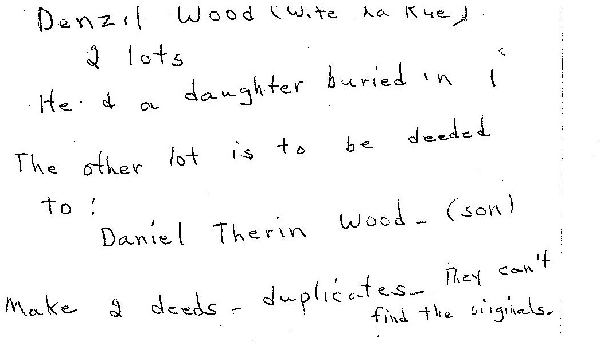 Denzil Wood (Wife La Rue)
2 lots
He & a daughter buried in 1
The other lot is to be deeded
to:
Daniel Therin Wood - (son)
Make 2 deeds - duplicates - They can't
find the originals.